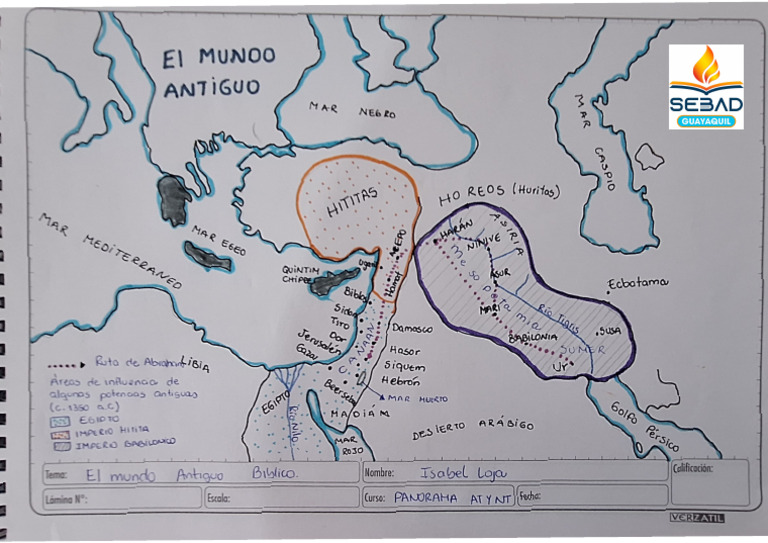 El MUNDO
ANTIGUO
SEBAD
GUAYAQUIL
MAR NEGRO
MAR CASPIO
HITITAS
HOREOS (Huritas)
ASIRIA
HARÁN
NINIVE
MAR MEDITERRANEO
MAR EGEO
EPO
QUINTIM
CHIPRE
Ugarit
Hamat
Mesopotamia
ASUR
Ecbatama
Biblos
MARI
Río Tigris
Sidón
Tiro
CANAAN
Damasco
BABILONIA
SUSA
Dor
SUMER
Jerusalén
Hasor
Ur
Gaza
Siquem
Hebrón
LIBIA
Ruta de Abraham
Áreas de influencia de
algunas potencias antiguas
(c. 1350 a.C)
EGIPTO
IMPERIO HITITA
IMPERIO BABILONICO
EGIPTO
Río Nilo
Beerseba
MAR MUERTO
MADIÁM
MAR
ROJO
DESIERTO ARÁBIGO
Golfo Pérsico
Tema: El mundo Antiguo Biblico.
Nombre: Isabel Loja
Calificación:
Lámina N°:
Escala:
Curso: PANORAMA AT Y NT
Fecha:
VERZATIL